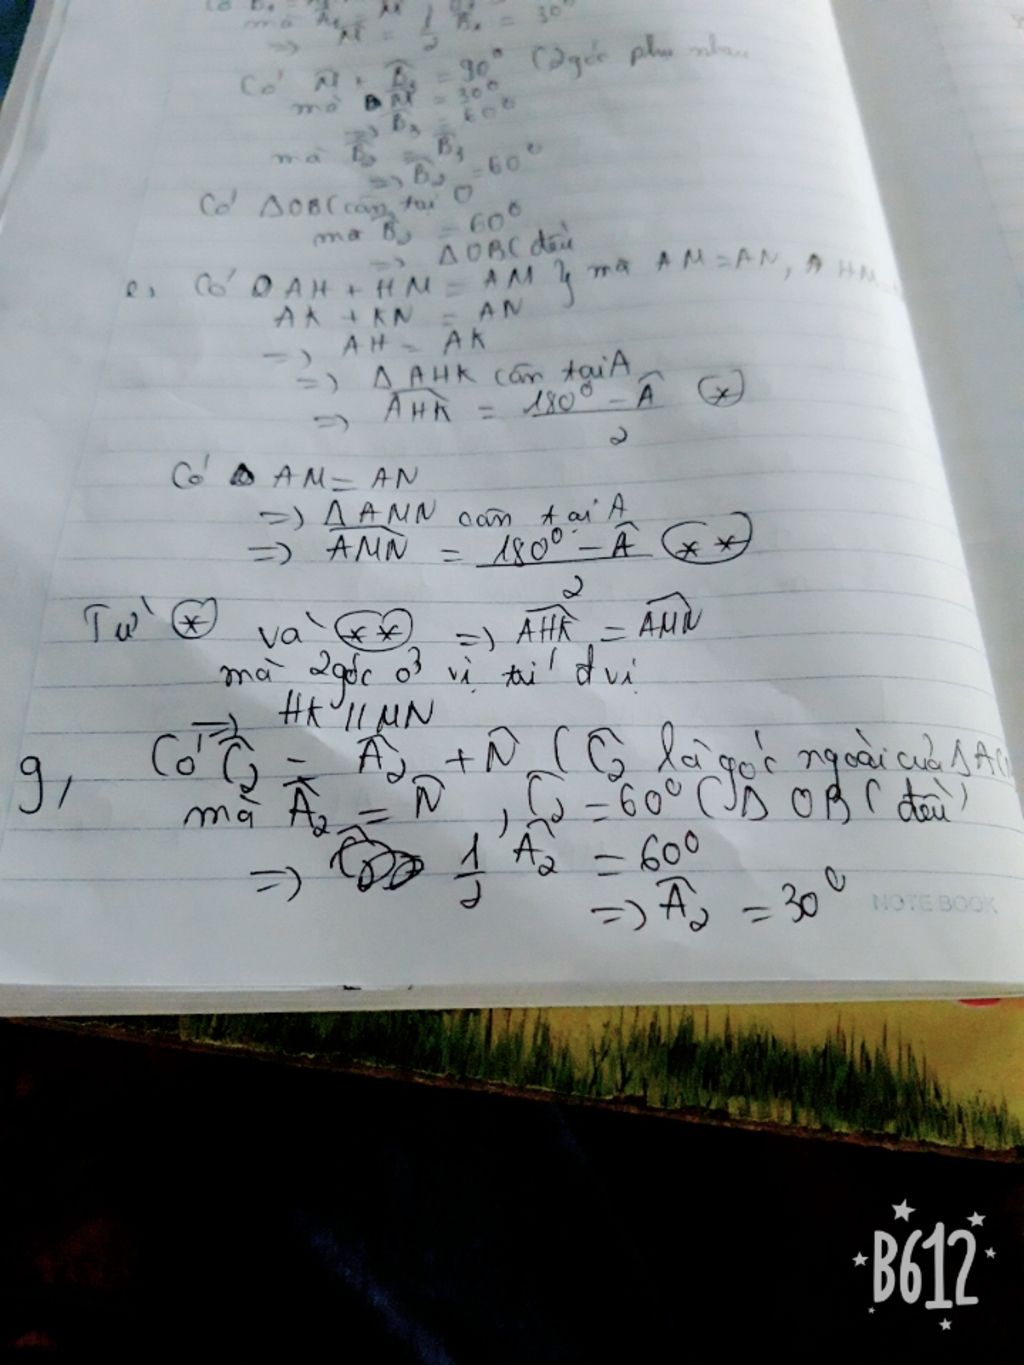 = 30°
⇒ M̂ = 1/2 B̂₁
Có M̂ + B̂₃ = 90° (2 góc phụ nhau
mà M̂ = 30°
⇒ B̂₃ = 60°
mà B̂₂ = B̂₃
⇒ B̂₂ = 60°
Có ΔOBC cân tại O
mà B̂₂ = 60°
⇒ ΔOBC đều
e, Có AH + HM = AM } mà AM = AN, HM
AK + KN = AN
⇒ AH = AK
⇒ ΔAHK cân tại A
⇒ AHK = (180° - Â)/2 (*)
Có AM = AN
⇒ ΔAMN cân tại A
⇒ AMN = (180° - Â)/2 (**)
Từ (*) và (**) ⇒ AHK = AMN
mà 2 góc ở vị trí đ vị
⇒ HK // MN
g, Có Ĉ₂ = Â₂ + N̂ (Ĉ₂ là góc ngoài của ΔAC
mà Â₂ = N̂, Ĉ₂ = 60° (Δ OBC đều)
⇒ 1/2 Â₂ = 60°
⇒ Â₂ = 30°
NOTE BOOK
B612